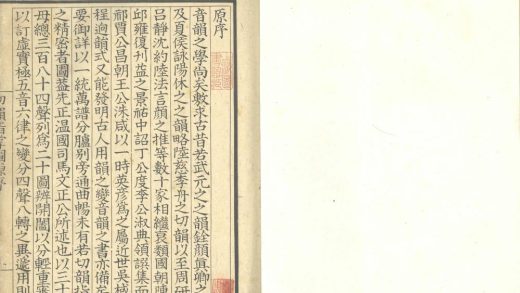 原序
音韻之學尚矣敷求古昔若武元之之韻銓顏真卿之
及夏侯詠陽休之之韻略陸慈李舟之切韻以至周研
呂靜沈約陸法言顏之推等數十家相繼裒類國朝陳
邱雍復刋益之景祐中詔丁公度李公淑典領譔集而
祁賈公昌朝王公洙咸以一時英彥爲之屬近世吳棫
程迥韻式又能發明古人用韻之變音韻之書亦備
要御詳以一統萬譜分臚別旁通曲暢未有若切韻指
之精密者圖蓋先正溫國司馬文正公所述也以三十
母總三百八十四聲列爲二十圖辨開闔以分輕重審
以訂虛實極五音六律之變分四聲八轉之異遞用則